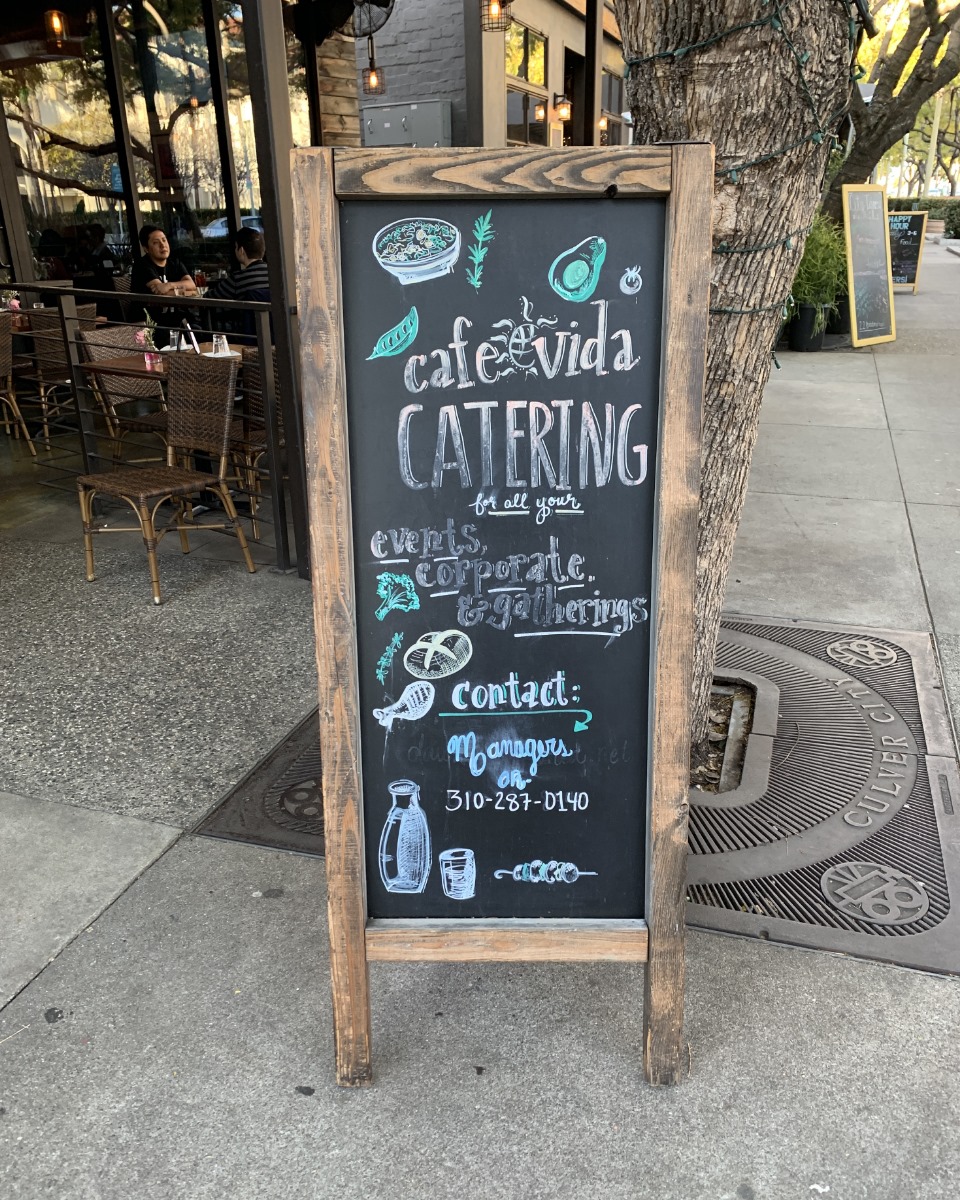 cafe vida
CATERING
for all your
events,
corporate.
& gatherings
contact:
Managers
or
310-287-0140
CULVER CITY
HAPPY
HOUR
3-6
Food